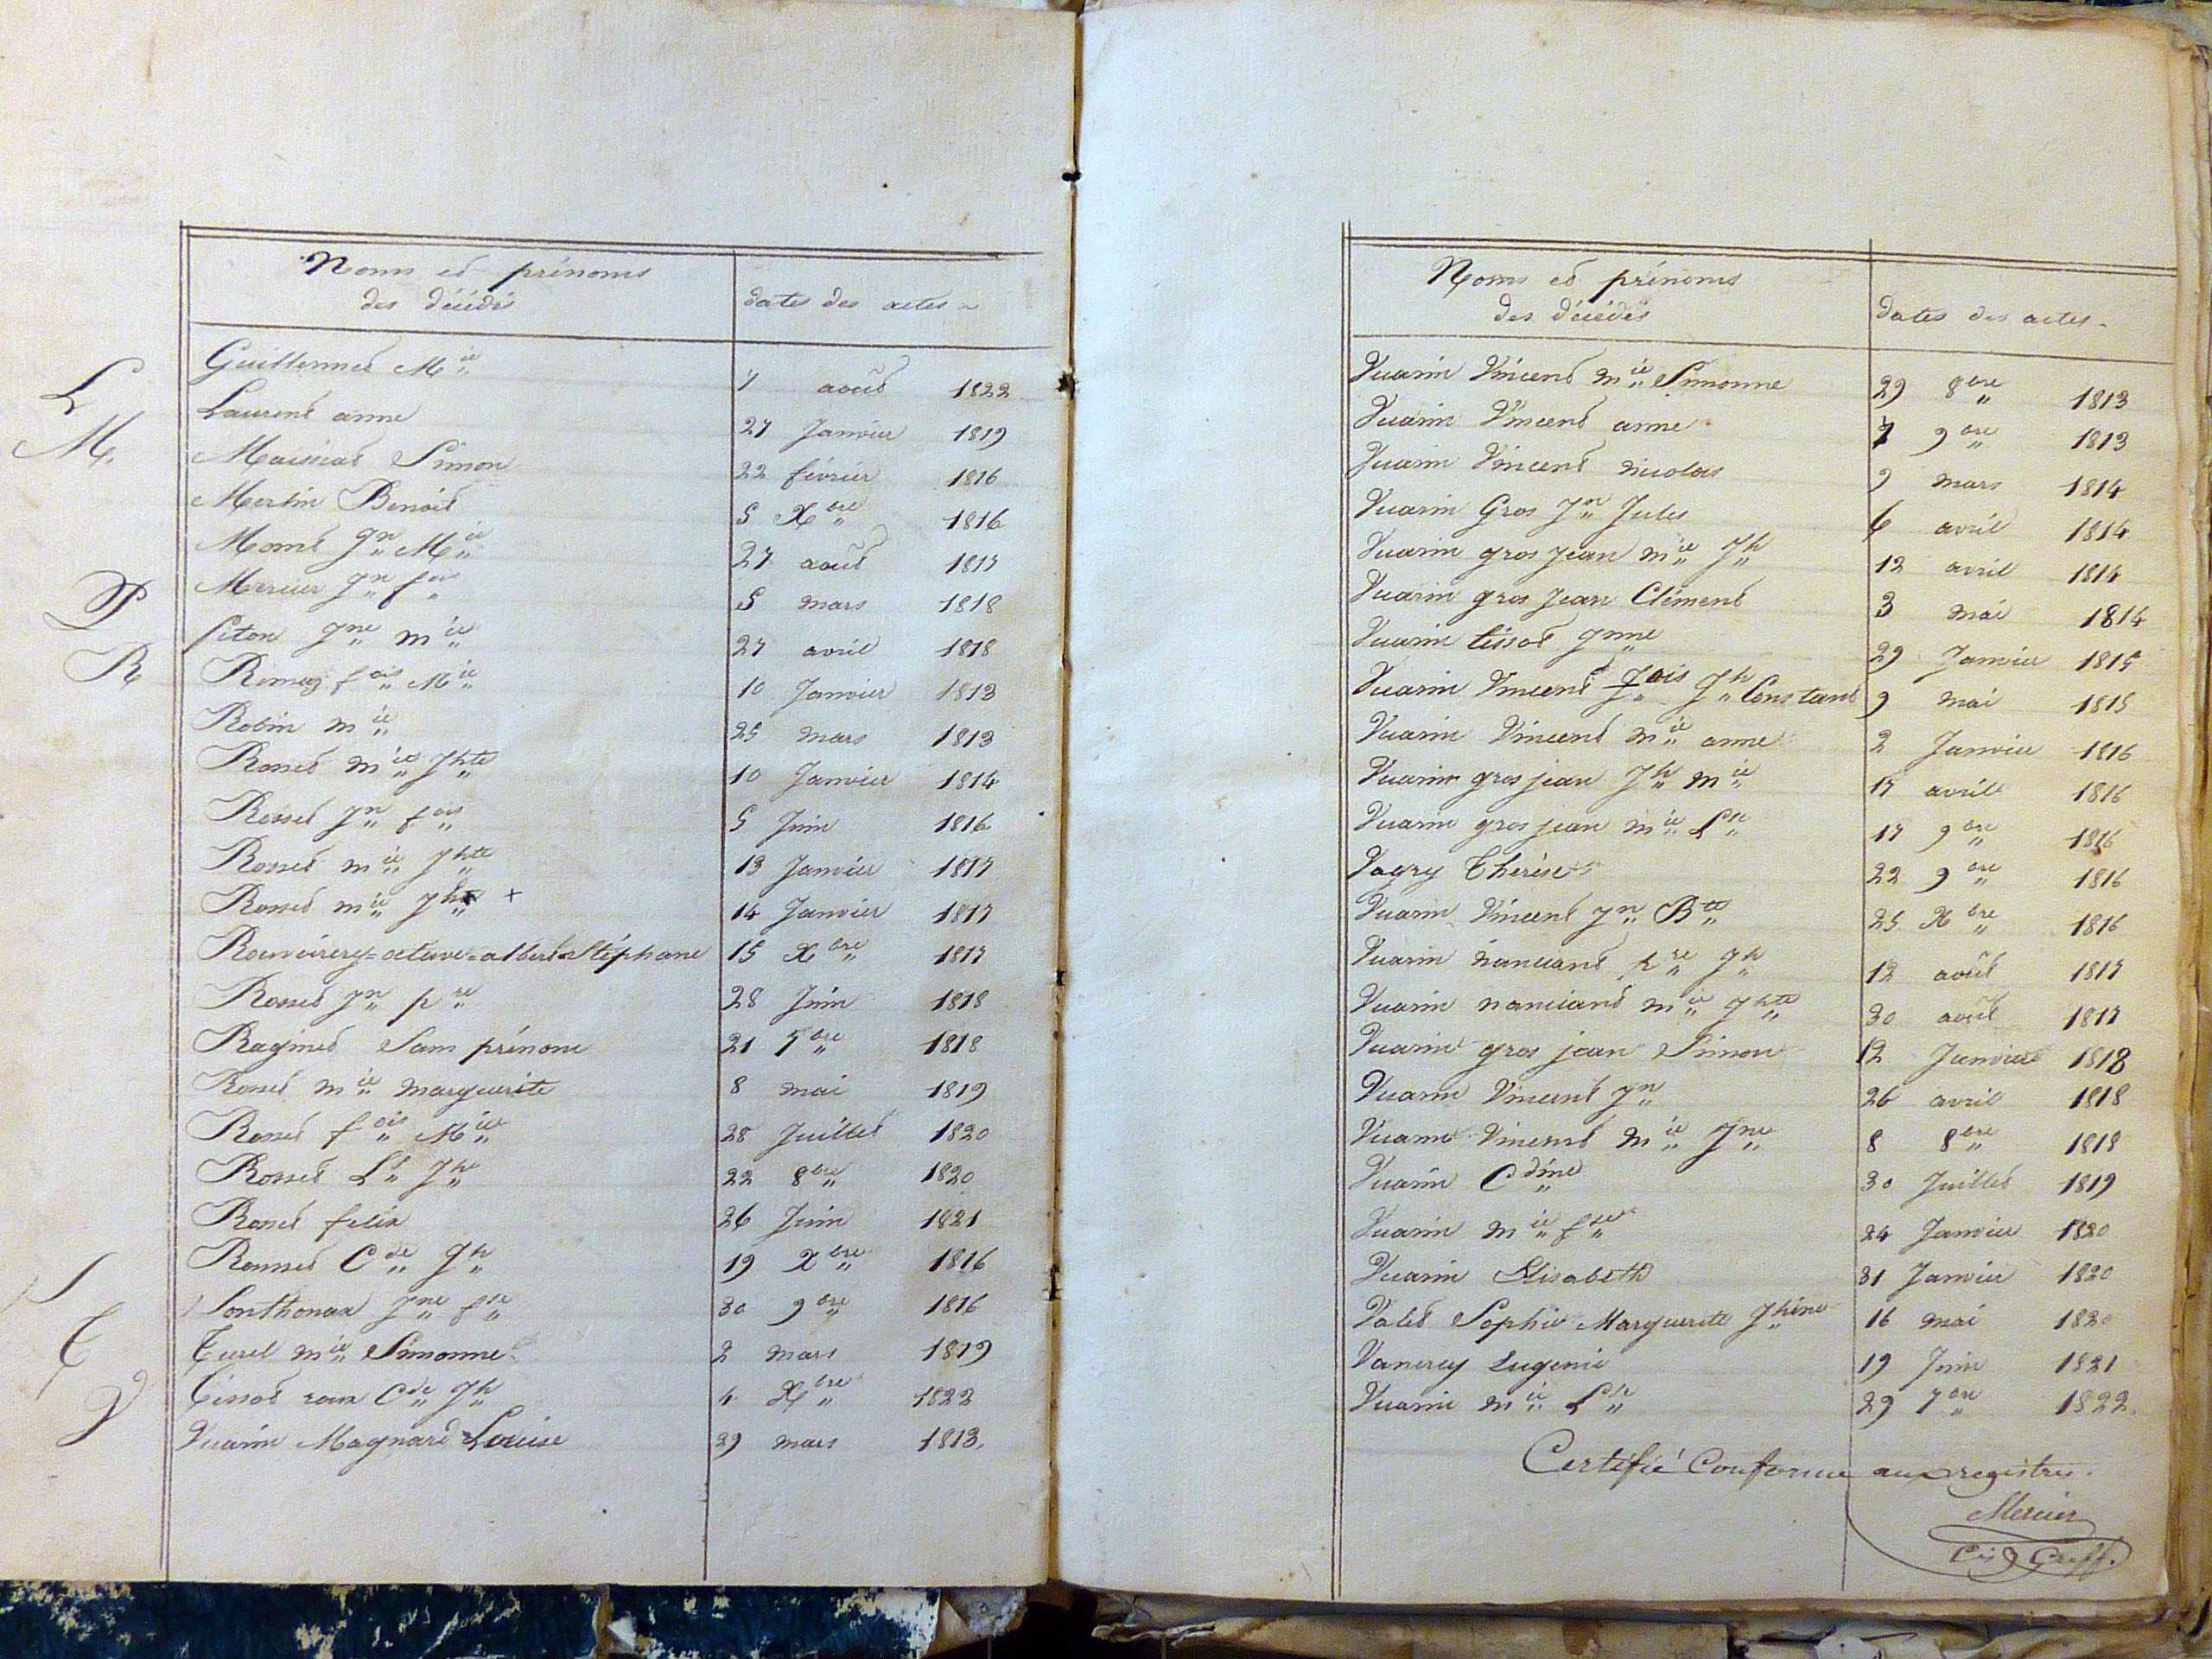 Noms et prénoms
des décédés
dates des actes
Guillermet Mie 7 août 1822
L
Laurent anne 27 Janvier 1819
M.
Simon 22 février 1816
Merlin Benoit 5 Xbre 1816
Jn Mie 27 août 1817
Mercier Jn fois 5 mars 1818
P
Piton Jne mie 27 avril 1818
R
fois Mie 10 Janvier 1813
Robin mie 25 mars 1813
Rosset mie Jhte 10 Janvier 1814
Rosset Jn fois 5 Juin 1816
Rosset mie Jhte 13 Janvier 1817
Rosset mie Jhte + 14 Janvier 1817
octave=albert Stéphane 15 Xbre 1817
Rosset Jn pre 28 Juin 1818
Raginet Sans prénom 21 7bre 1818
Rosset mie marguerite 8 mai 1819
Rosset fois Mie 28 Juillet 1820
Rosset Lt Jh 22 8bre 1820
Rosset felix 26 Juin 1821
Cde Jh 19 Xbre 1816
S
Sonthonax Jne fse 30 9bre 1816
T
Turel mie Simonne 2 mars 1819
Tissot roux Cde Jh 4 Xbre 1822
V
Vuarin Magnard Louise 29 mars 1813.
Noms et prénoms
des décédés
dates des actes.
Vuarin Vincent mie Simonne 29 8bre 1813
Vuarin Vincent anne 7 9bre 1813
Vuarin Vincent nicolas 9 mars 1814
Vuarin Gros Jn Jules 6 avril 1814
Vuarin gros jean mie Jh 12 avril 1814
Vuarin gros jean Clément 3 mai 1814
Vuarin tissot Jnne 29 Janvier 1815
Vuarin Vincent fois Jh Constant 9 mai 1815
Vuarin Vincent mie anne 2 Janvier 1816
Vuarin gros jean Jh mie 17 avril 1816
Vuarin gros jean mie Lse 17 9bre 1816
Vagry Thérèse 22 9bre 1816
Vuarin Vincent Jn Bte 25 Xbre 1816
Vuarin nanciant pre Jh 12 août 1817
Vuarin nanciant mie Jhte 30 août 1817
Vuarin gros jean Simon 12 Janvier 1818
Vuarin Vincent Jn 26 avril 1818
Vuarin Vincent mie Jne 8 8bre 1818
Vuarin Cdine 30 Juillet 1819
Vuarin mie fse 24 Janvier 1820
Vuarin Elisabeth 31 Janvier 1820
Valet Sophie Marguerite Jhine 16 mai 1820
Vanerey Eugenie 19 Juin 1821
Vuarin mie Lse 29 7bre 1822.
Certifié Conforme aux registres.
Mercier
Cis Greff.